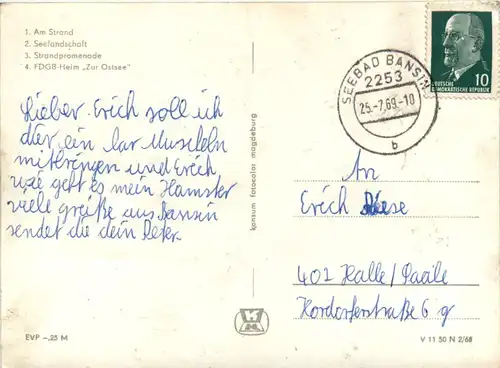 1. Am Strand
2. Seelandschaft
3. Strandpromenade
4. FDGB-Heim „Zur Ostsee"
Lieber. Erich soll ich
dier ein bar Muscheln
mitbringen und Erich
wie geht es mein Hamster
viele grüße aus Bansin
sendet die dein Peter.
EVP –,25 M
konsum fotocolor magdeburg
SEEBAD BANSIN
2253
25.-7.69.-10
b
DEUTSCHE
DEMOKRATISCHE REPUBLIK
10
An
Erich
401 Halle/Saale
Hordorferstraße 6 g
V 11 50 N 2/68